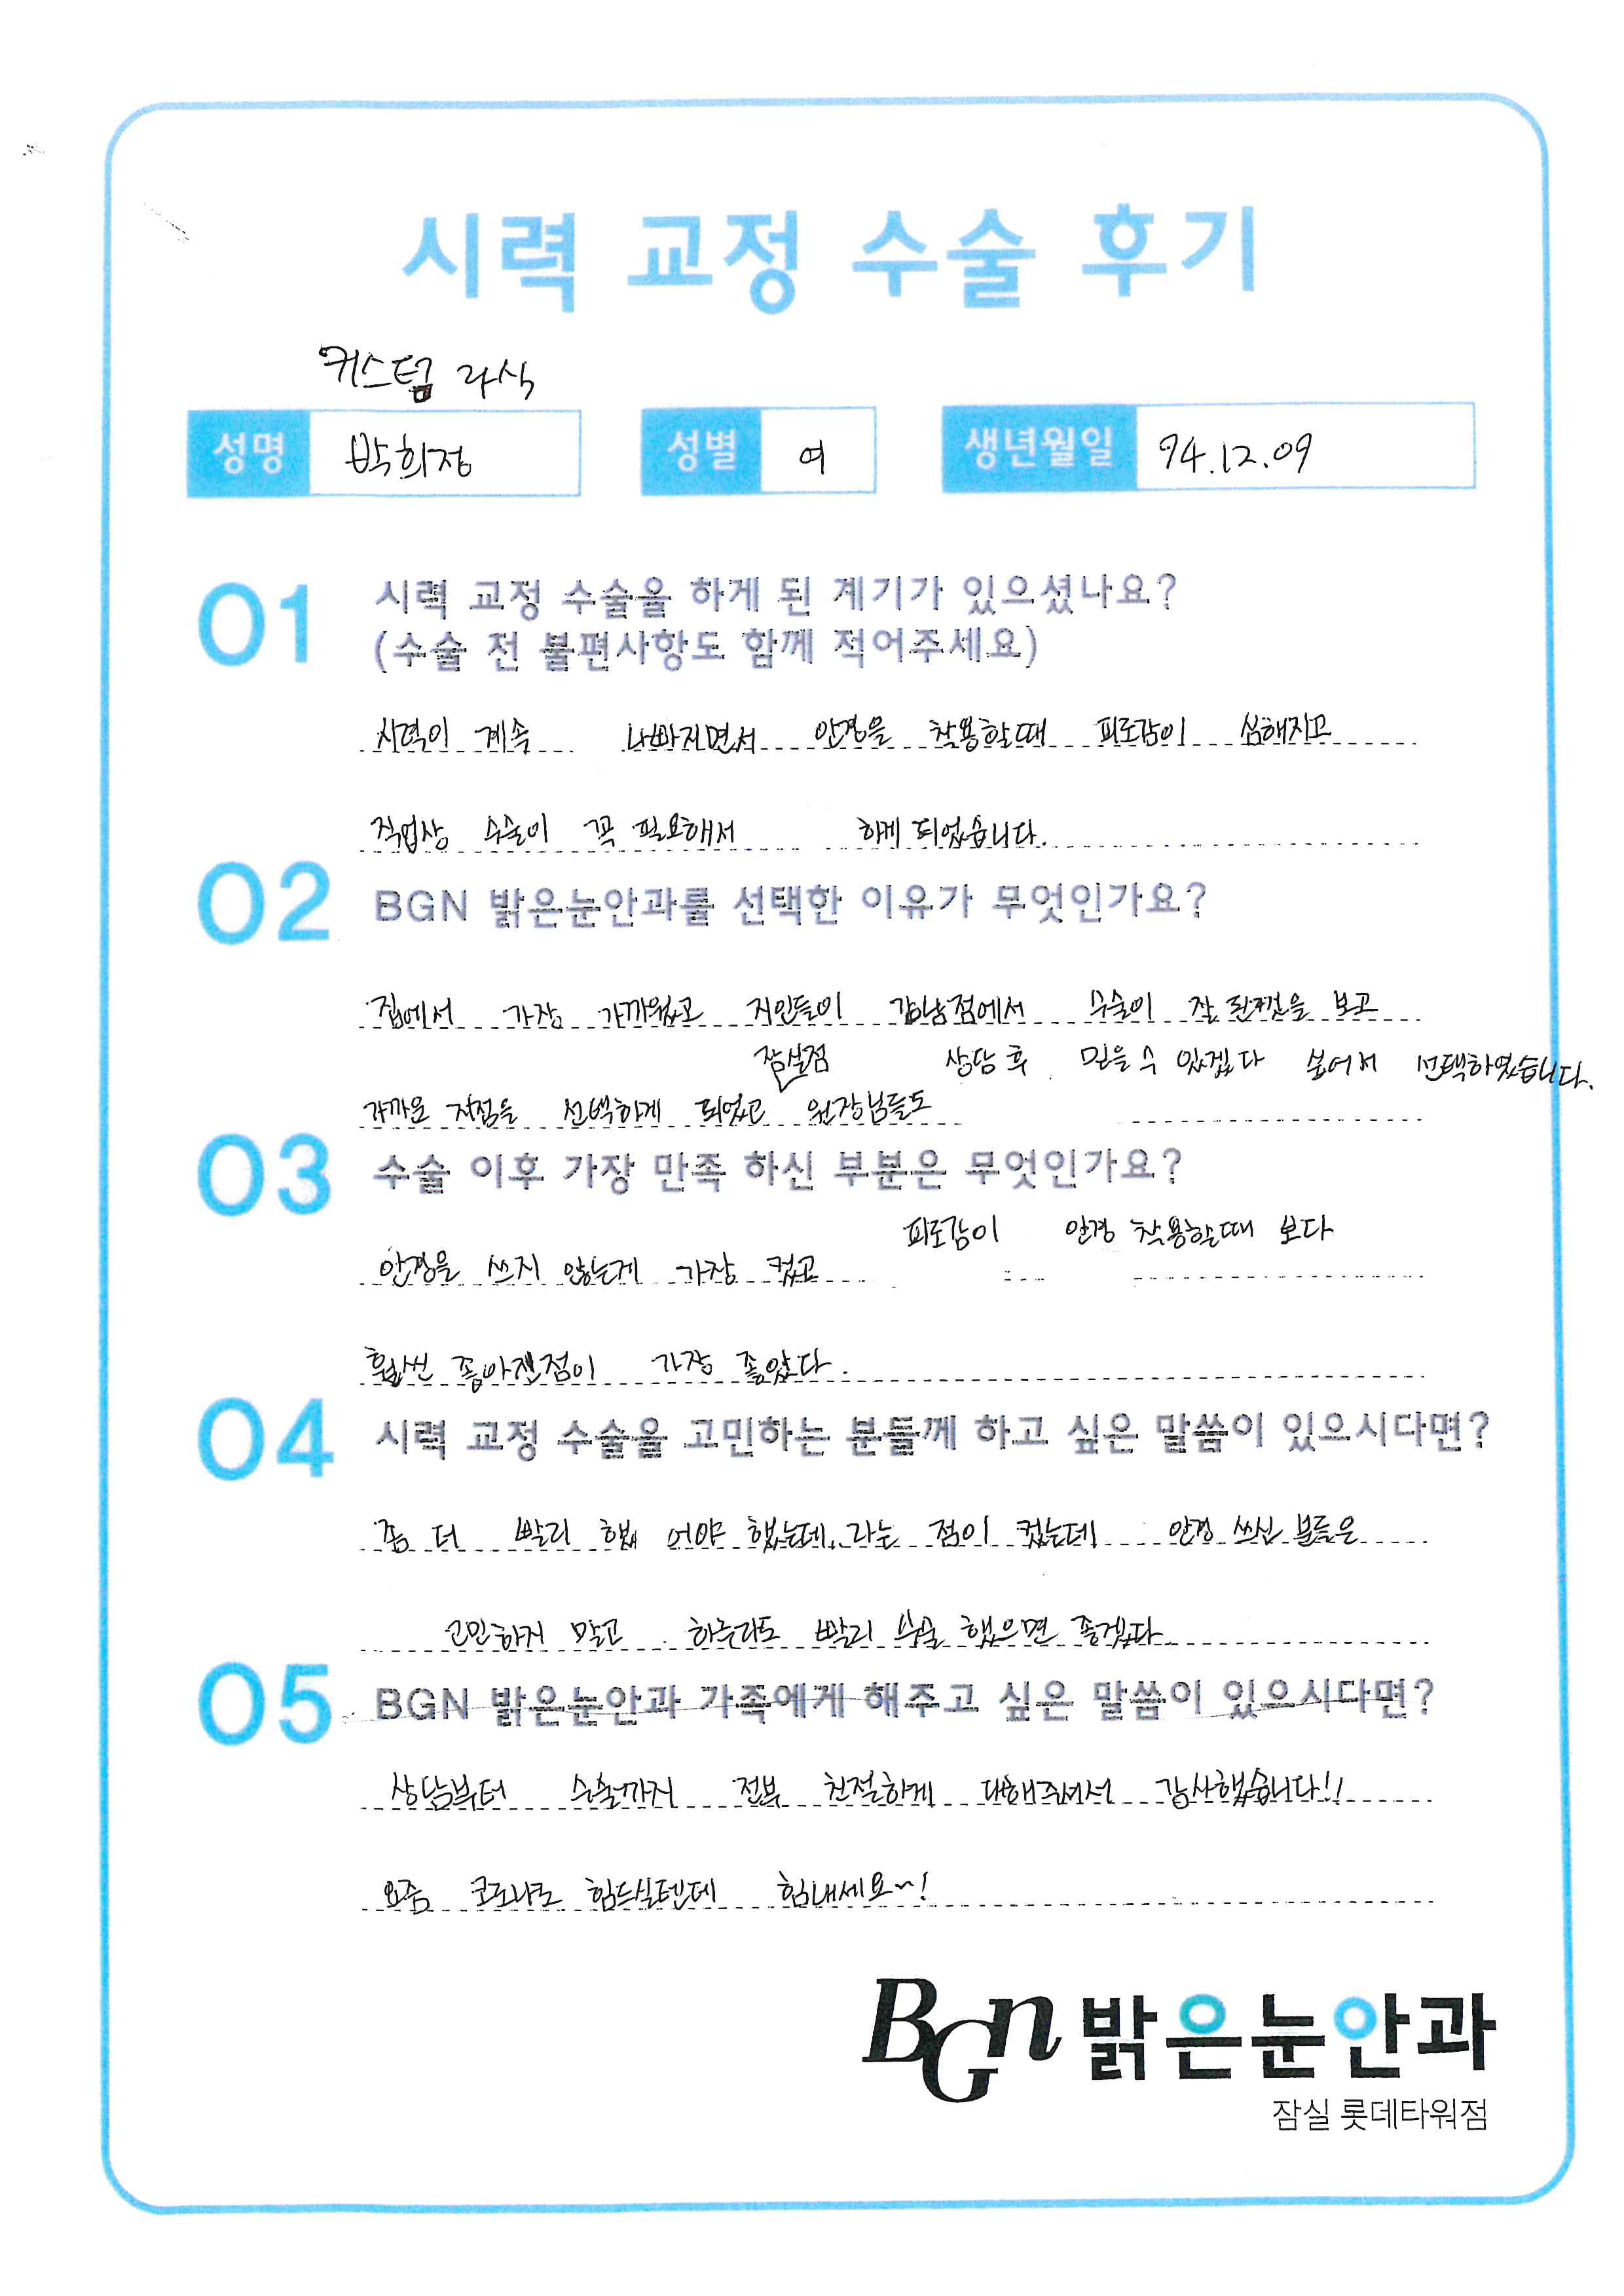 시력 교정 수술 후기
커스텀 라식
성명 박희정 성별 여 생년월일 94.12.09
01 시력 교정 수술을 하게 된 계기가 있으셨나요?
(수술 전 불편사항도 함께 적어주세요)
시력이 계속 나빠지면서 안경을 착용할때 피로감이 심해지고
직업상 수술이 꼭 필요해서 하게 되었습니다.
02 BGN 밝은눈안과를 선택한 이유가 무엇인가요?
집에서 가장 가까웠고 지인들이 강남점에서 수술이 잘 된것을 보고
잠실점 상담 후 믿을 수 있겠다 싶어서 선택하였습니다.
가까운 지점을 선택하게 되었고 원장님들도
03 수술 이후 가장 만족 하신 부분은 무엇인가요?
피로감이 안경 착용할때 보다
안경을 쓰지 않는게 가장 컸고
훨씬 좋아진점이 가장 좋았다.
04 시력 교정 수술을 고민하는 분들께 하고 싶은 말씀이 있으시다면?
좀 더 빨리 했 어야 했는데..라는 점이 컸는데 안경 쓰신 분들은
고민하지 말고 하루라도 빨리 수술 했으면 좋겠다
05 BGN 밝은눈안과 가족에게 해주고 싶은 말씀이 있으시다면?
상담부터 수술까지 전부 친절하게 대해주셔서 감사했습니다!!
요즘 코로나로 힘드실텐데 힘내세요~!
BGn 밝은눈안과
잠실 롯데타워점